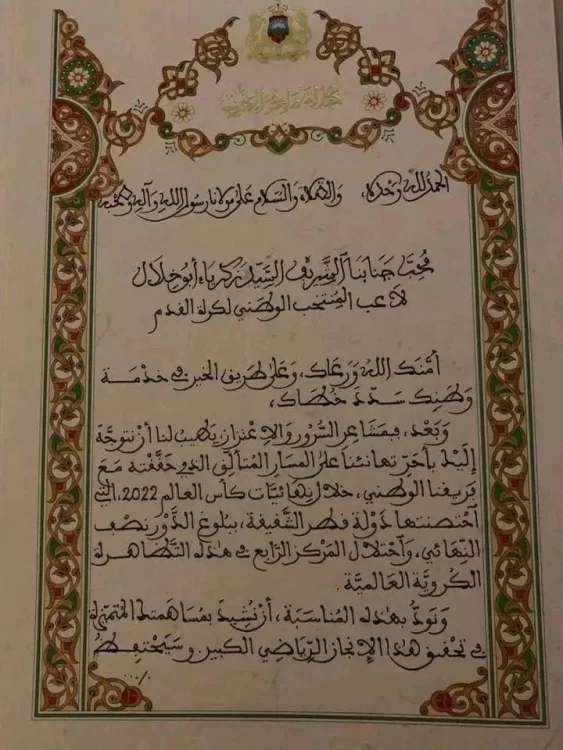 الحمد لله وحده، والصلاة والسلام على مولانا رسول الله وآله وصحبه
محب جنابنا الشريف السيد زكرياء أبو خلال
لاعب المنتخب الوطني لكرة القدم
أمنك الله ورعاك، وعلى طريق الخير في خدمة
وطنك سدد خطاك،
وبعد، فبمشاعر السرور والاعتزاز يطيب لنا أن نتوجه
إليك بأحر تهانئنا على المسار المتألق الذي حققته مع
فريقنا الوطني، خلال نهائيات كأس العالم 2022، التي
احتضنتها دولة قطر الشقيقة، ببلوغ الدور نصف
النهائي، واحتلال المركز الرابع في هذه التظاهرة
الكروية العالمية.
ونود بهذه المناسبة، أن نشيد بمساهمتك المتميزة
في تحقيق هذا الإنجاز الرياضي الكبير وسيحتفظ
.../.